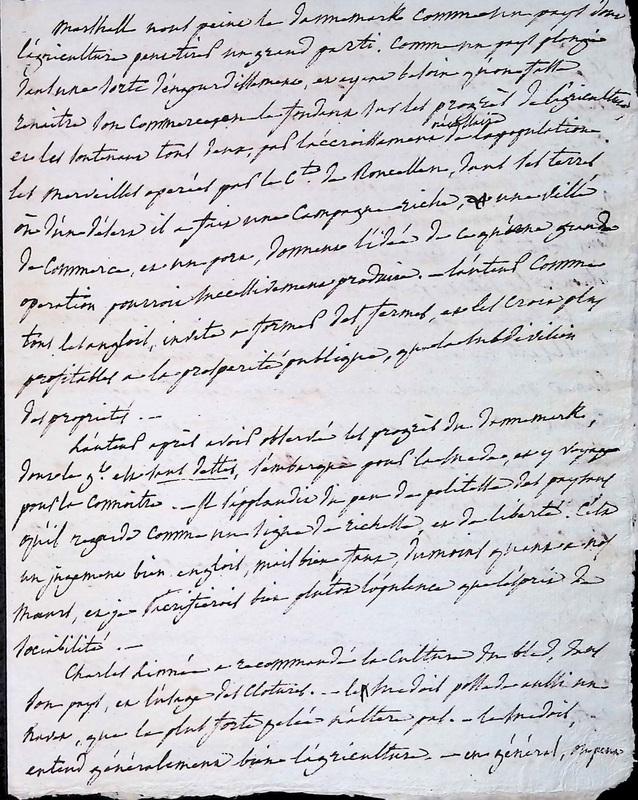 Marshall nous peint le Dannemark comme un pays dont
l'agriculture peut tirer un grand parti. Comme un pays plongé
dans une sorte d'engourdissement, et ayant besoin qu'on fasse
renaitre son commerce en le fondant sur les progrès de l'agriculture,
et les soutenant tous deux, par l'accroissement nécessaire de la population
les merveilles operées par le Cte. de Roncellen, dans ses terres
où d'un désert il a fait une Campagne riche, et une ville
de commerce, et un port, donnent l'idée de ce qu'une grande
operation pourroit successivement produire. - l'auteur comme
tous les anglois, invite a former des fermes, et les croit plus
profitables a la prosperité publique, que la subdivision
des proprietés. --
L'auteur après avoir observé les progrès du Dannemark,
dont le gt. est sans dettes, s'embarque pour la Suede, et y voyage
pour la connoitre. - Il s'applaudit du peu de politesse des paysans
qu'il regarde comme un signe de richesse et de liberté. C'est
un jugement bien anglois, mais bien faux, du moins quant a nos
mœurs, et je sacrifierois bien plutôt l'opulence que l'esprit de
sociabilité. -
Charles Linné a recommandé la culture du bled, dans
son pays, et l'usage des clotures. - le Suedois possede aussi un
navet, que la plus forte gelée n'altere pas. - le Suedois,
entend généralement bien l'agriculture. - en général, on peut